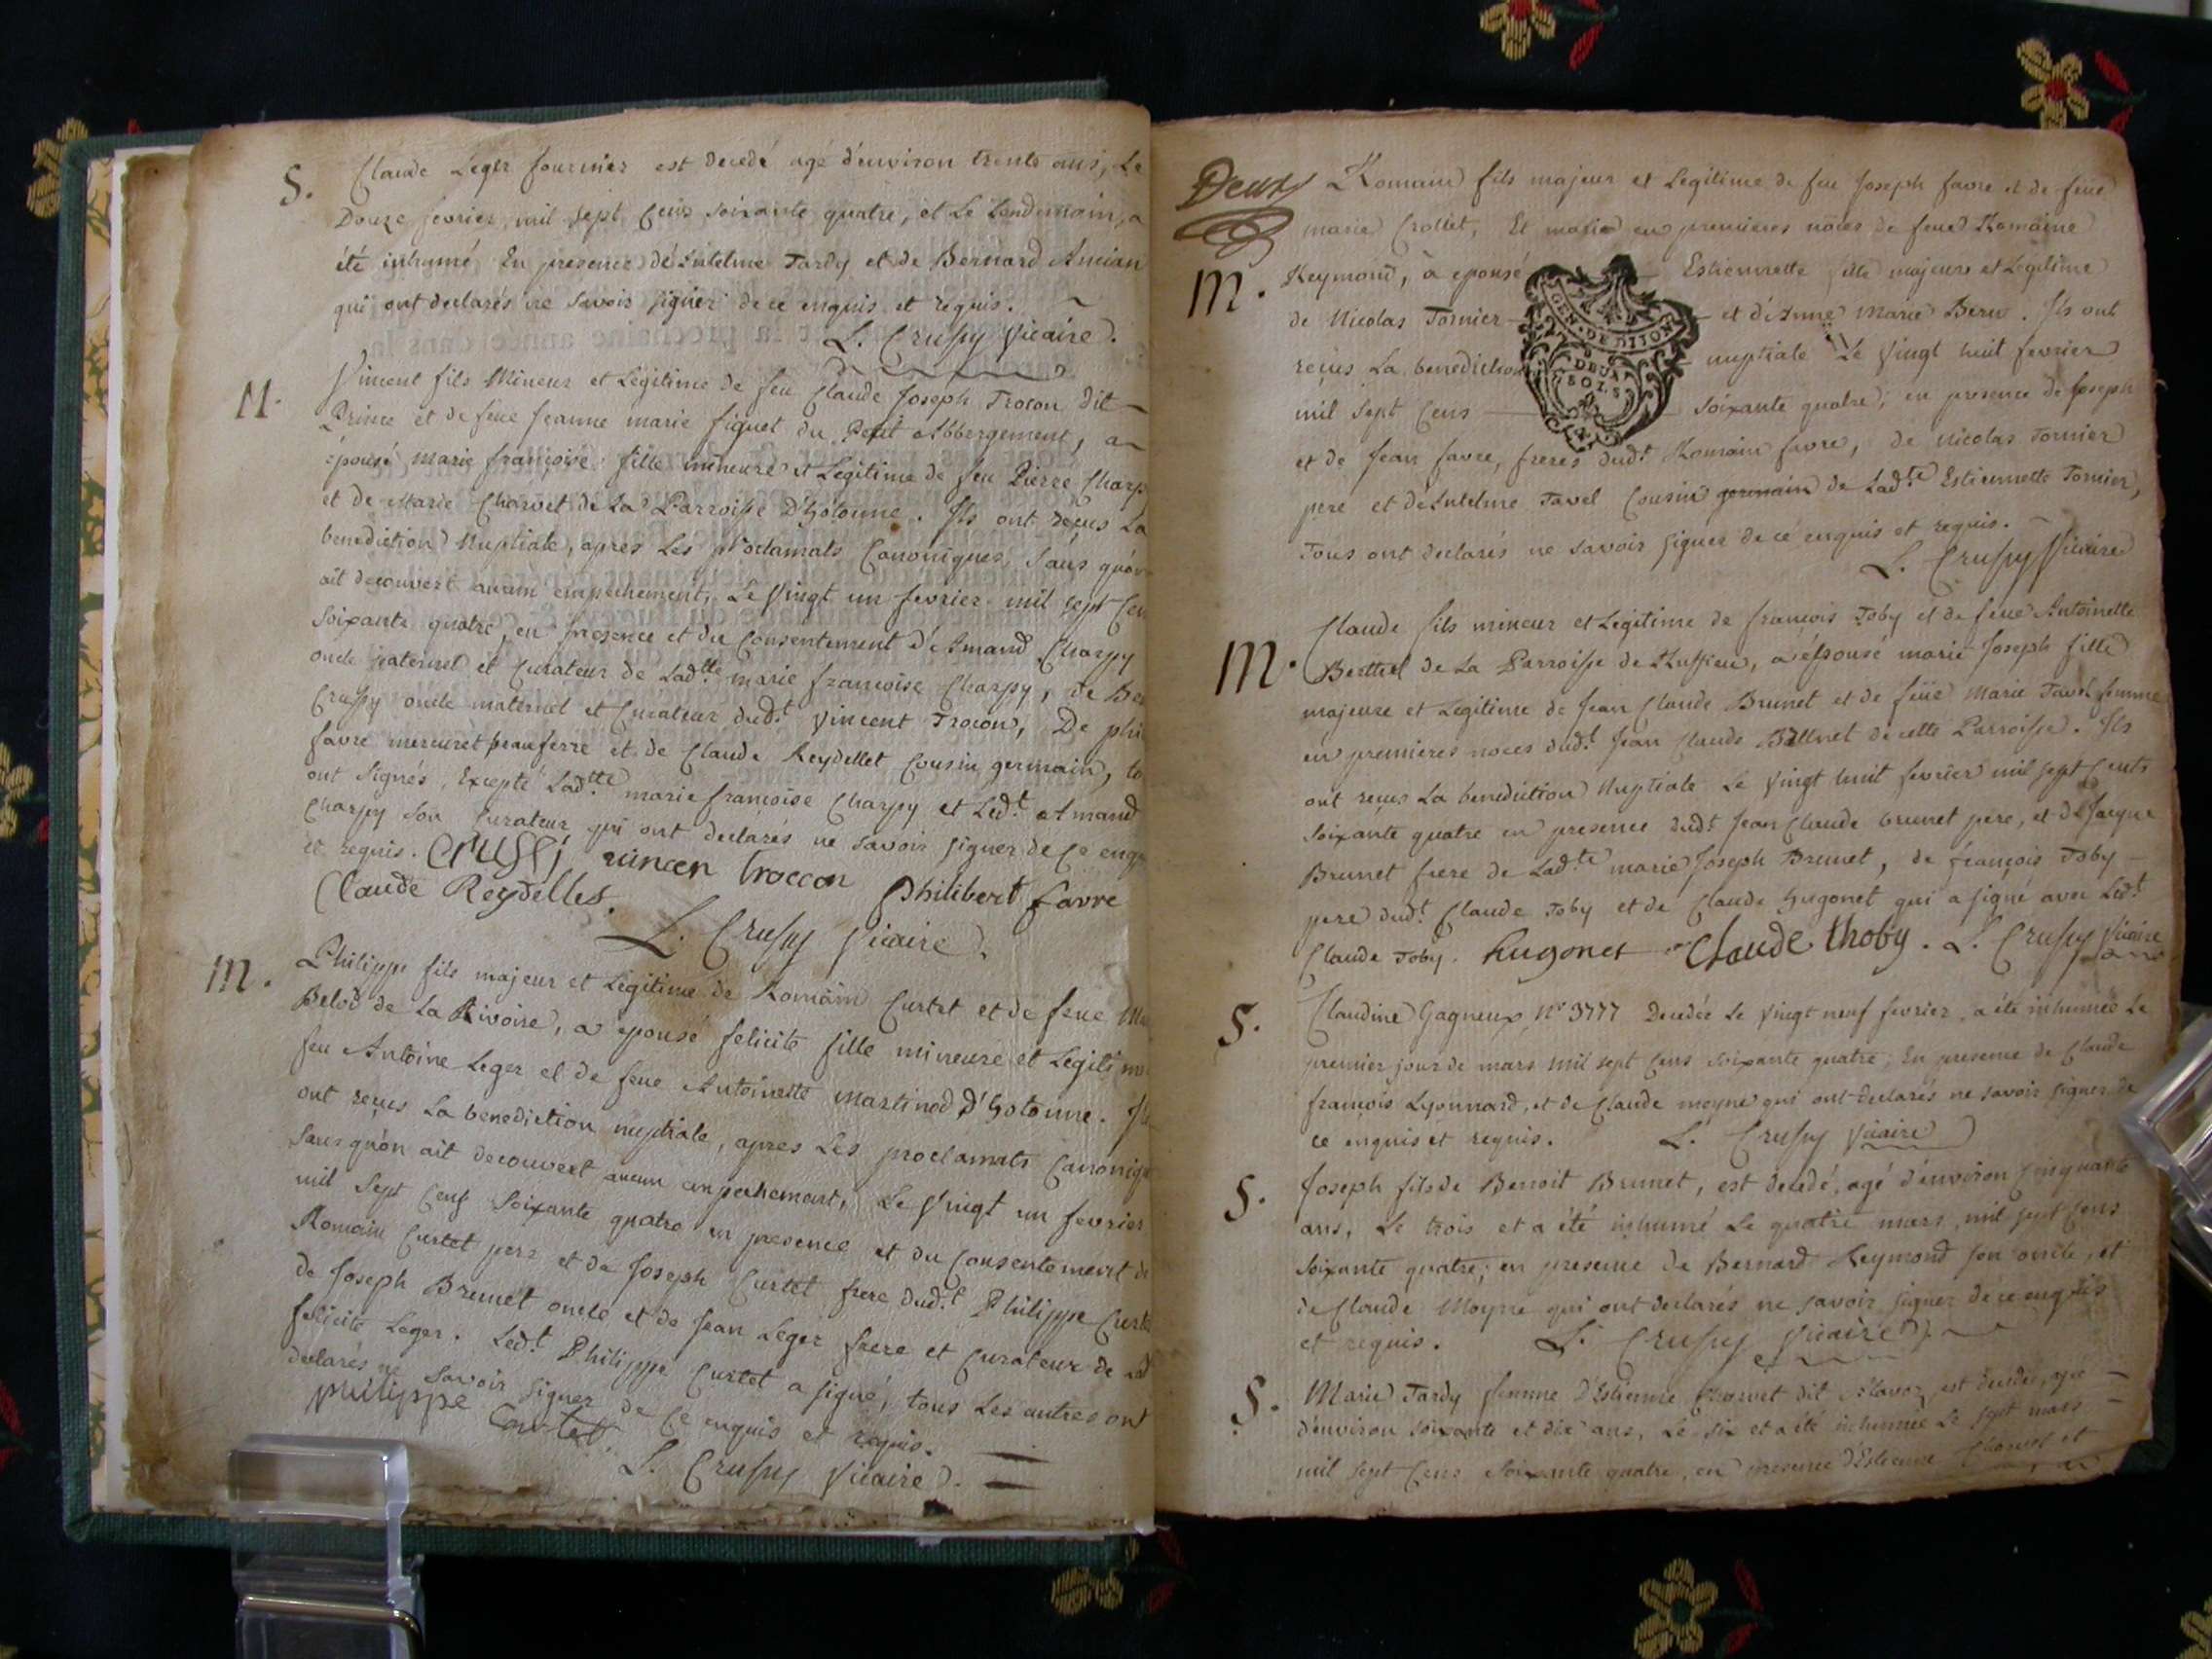 S. Claude Leger fournier est decedé agé d'environ trente ans, Le
Douze fevrier, mil sept Cens soixante quatre, et Le Lendemain, a
été inhumé En presence d'Entelme Tardy et de Bernard Ancian
qui ont declarés ne savoir signer de ce enquis et requis.
L. Crussy Vicaire.
M. Vincent fils Mineur et Legitime de feu Claude Joseph Trocon dit
Prince et de feue Jeanne marie figuet du Petit Abbergement, a
épousé Marie françoise fille mineure et Legitime de feu Pierre Charp
et de Marie Charvet de La Parroisse D'hotonne. Ils ont reçus La
benediction Nuptiale, apres Les Proclamats Canoniques, Sans qu'on
ait decouvert aucun empechement, Le Vingt un fevrier mil sept Cen
soixante quatre, en presence et du Consentement d'Amand Charpy
oncle paternel et Curateur de Ladtte marie françoise Charpy, de Ber
Crussy oncle maternel et Curateur dudt Vincent Trocon, De phi
favre mercuret beaufrere et de Claude Reydellet Cousin germain, to
ont Signés, Excepté Ladtte marie francoise Charpy et Ledt Amand
Charpy son Curateur qui ont declarés ne savoir signer de Ce enqu
et requis. Crussi vincen troccon Philibert favre
Claude Reydelles
L. Crussy Vicaire.
M. Philippe fils majeur et Legitime de Romain Curtet et de feue Ma
Belod de La Rivoire, a epousé felicité fille mineure et Legitime
feu Antoine Leger et de feue Antoinette Martinod D'hotonne. Ils
ont reçus La benediction nuptiale, apres Les proclamats Canoniqu
Sans qu'on ait decouvert aucun empechement, Le Vingt un fevrier
mil Sept Cens Soixante quatre en presence et du Consentement de
Romain Curtet pere et de Joseph Curtet frere dudt Philippe Curte
de Joseph Brunet oncle et de Jean Leger frere et Curateur de Lad
felicité Leger. Ledt Philippe Curtet a signé, tous Les autres ont
declarés ne savoir signer de Ce enquis et requis.
philippe Curtet
L. Crussy Vicaire.
Deux Romain fils majeur et Legitime de feu Joseph favre et de feue
marie Crottet, Et mari en premieres noces de feue Romaine
M. Reymond, a epousé Estiennette fille majeure et Legitime
de Nicolas Tornier et d'Anne Marie Beru. Ils ont
reçus La benediction nuptiale Le Vingt huit fevrier
mil Sept Cens soixante quatre, en presence de Joseph
GEN. DE DIJON
DEUX
SOLS
et de Jean favre, freres dudt Romain favre, de Nicolas Tornier
pere et d'Entelme Tavel Cousin germain de Ladte Estiennette Tornier,
Tous ont declarés ne savoir signer de ce enquis et requis.
L. Crussy Vicaire
M. Claude fils mineur et Legitime de françois Toby et de feue Antoinette
Berthet de La Parroisse de Ruffieu, a épousé marie Joseph fille
majeure et Legitime de Jean Claude Brunet et de feue Marie Tavel femme
en premieres noces dudt Jean Claude Brunet de cette Parroisse. Ils
ont reçus La benediction Nuptiale Le Vingt huit fevrier mil sept Cents
soixante quatre en presence dudt Jean Claude brunet pere, et de Jacque
Brunet frere de Ladte marie Joseph Brunet, de françois Toby
pere dudt Claude Toby et de Claude hugonet qui a signé avec Ledt
Claude Toby. hugonet Claude thoby. L. Crussy Vicaire
S. Claudine Gagneux No 3777 Decedée Le Vingt neuf fevrier, a été inhumée Le
premier jour de mars mil sept Cens soixante quatre, En presence de Claude
françois Lyonnard, et de Claude moyne qui ont declarés ne savoir signer de
ce enquis et requis. L. Crussy Vicaire
S. Joseph fils de Benoit Brunet, est decedé, agé d'environ Cinquante
ans, Le trois et a été inhumé Le quatre mars, mil sept Cens
soixante quatre, en presence de Bernard Reymond son oncle, et
de Claude Moyne qui ont declarés ne savoir signer de ce enquis
et requis. L. Crussy Vicaire.
S. Marie Tardy femme D'Estienne Charvet dit est decedée, agée
d'environ soixante et dix ans, Le Six et a été inhumée Le sept mars
mil sept Cens Soixante quatre, en presence d'Estienne Charvet et